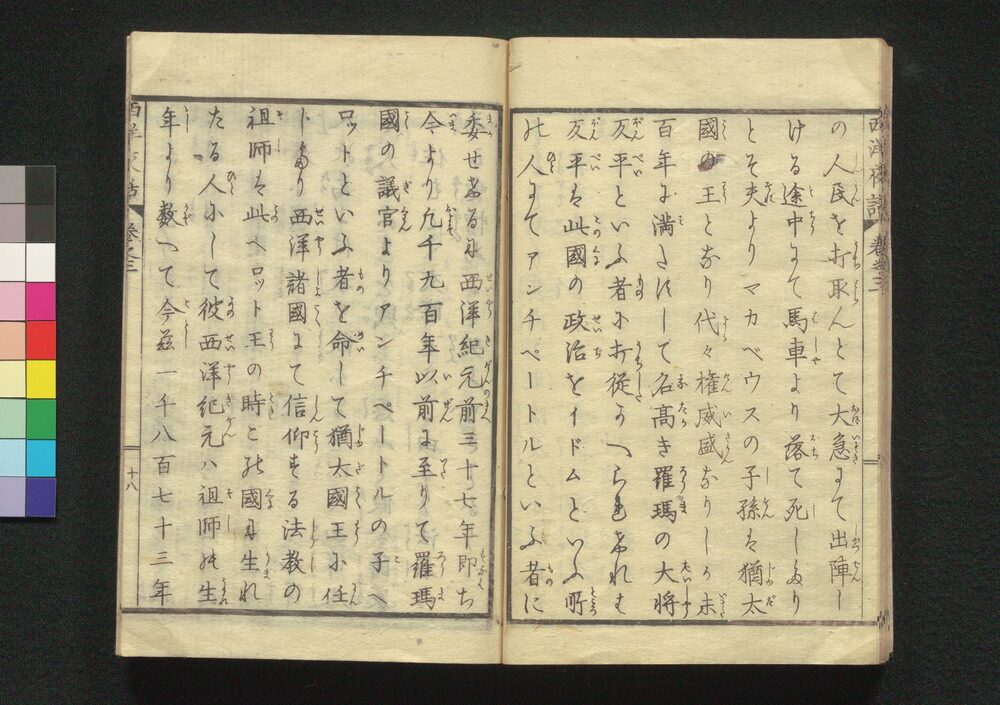 西洋夜話 巻之三
の人民を打取んとて大急にて出陣し
ける途中にて馬車より落て死したり
とぞ夫よりマカベウスの子孫は猶太
國の王となり代々権威盛なりしが未
百年に満たずして名高き羅瑪の大将
反平といふ者に打従へられければ
反平は此國の政治をイドムといふ所
の人にてアンチペートルといふ者に
委せたるに西洋紀元前三十七年即ち
今より凡千九百年以前に至りて羅瑪
國の議官よりアンチペートルの子ヘ
ロットといふ者を命して猶太國王に任
じたり西洋諸國にて信仰する法教の
祖師は此ヘロット王の時この國に生れ
たる人にして彼西洋紀元ハ祖師の生
年より数へて今茲一千八百七十三年
西洋夜話 巻之三
十八